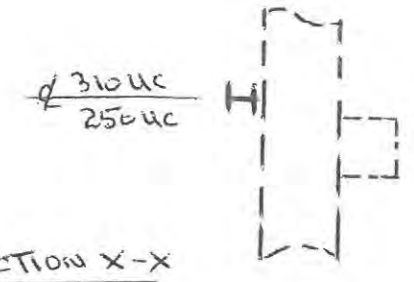 ℄ 310UC
250UC
CTION X-X